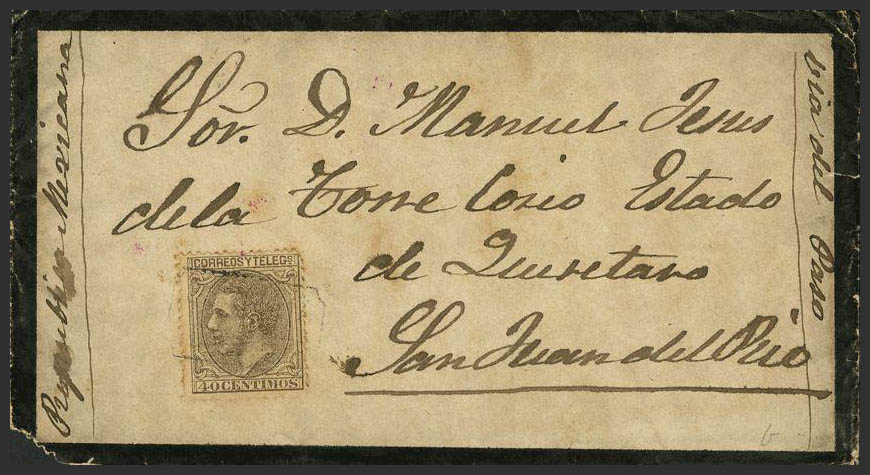 República Mexicana
Sor. D. Manuel Jesus
de la Torre Cosio Estado
de Queretaro
San Juan del Rio
via del Paso
CORREOS Y TELEGS
40 CENTIMOS